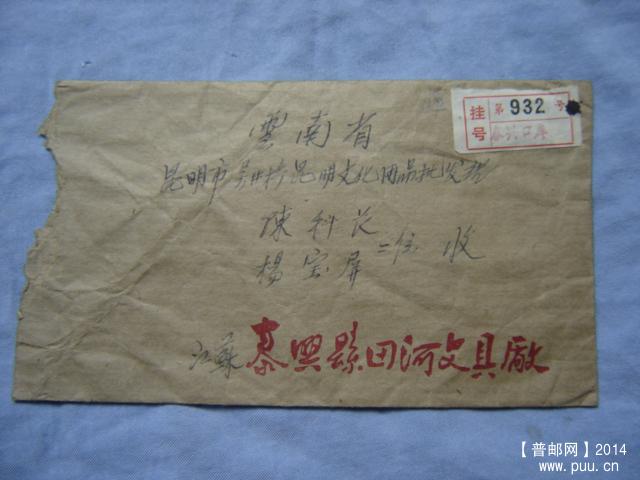 挂号 第932号
泰兴口岸
雲南省
昆明市吴井桥昆明文化用品批发站
陳科长
楊宝屏 二位 收
江蘇 泰興縣田河文具廠
【普邮网】2014
www.puu.cn